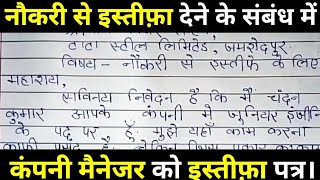 नौकरी से इस्तीफ़ा देने के संबंध में
टाटा स्टील लिमिटेड, जमशेदपुर
विषय - नौकरी से इस्तीफे के लिए
महाशय,
सविनय निवेदन है कि मैं चंदन
कुमार आपके कंपनी में जूनियर इंजीनि
के पद पर हूँ. मुझे यहाँ काम करना
कंपनी मैनेजर को इस्तीफ़ा पत्र।